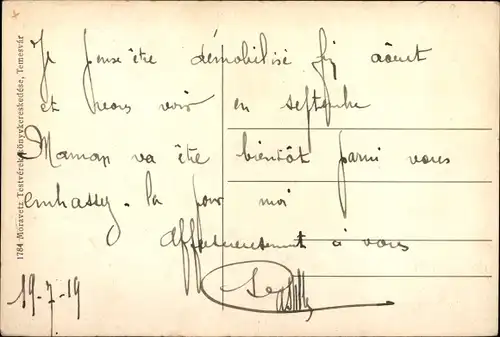 Je pense être démobilisé fin août
et vous voir en septembre
Maman va être bientôt parmi vous
embrassez-la pour moi
Affectueusement à vous
19-7-19
1784 Moravetz Testvérek Könyvkereskedése, Temesvár